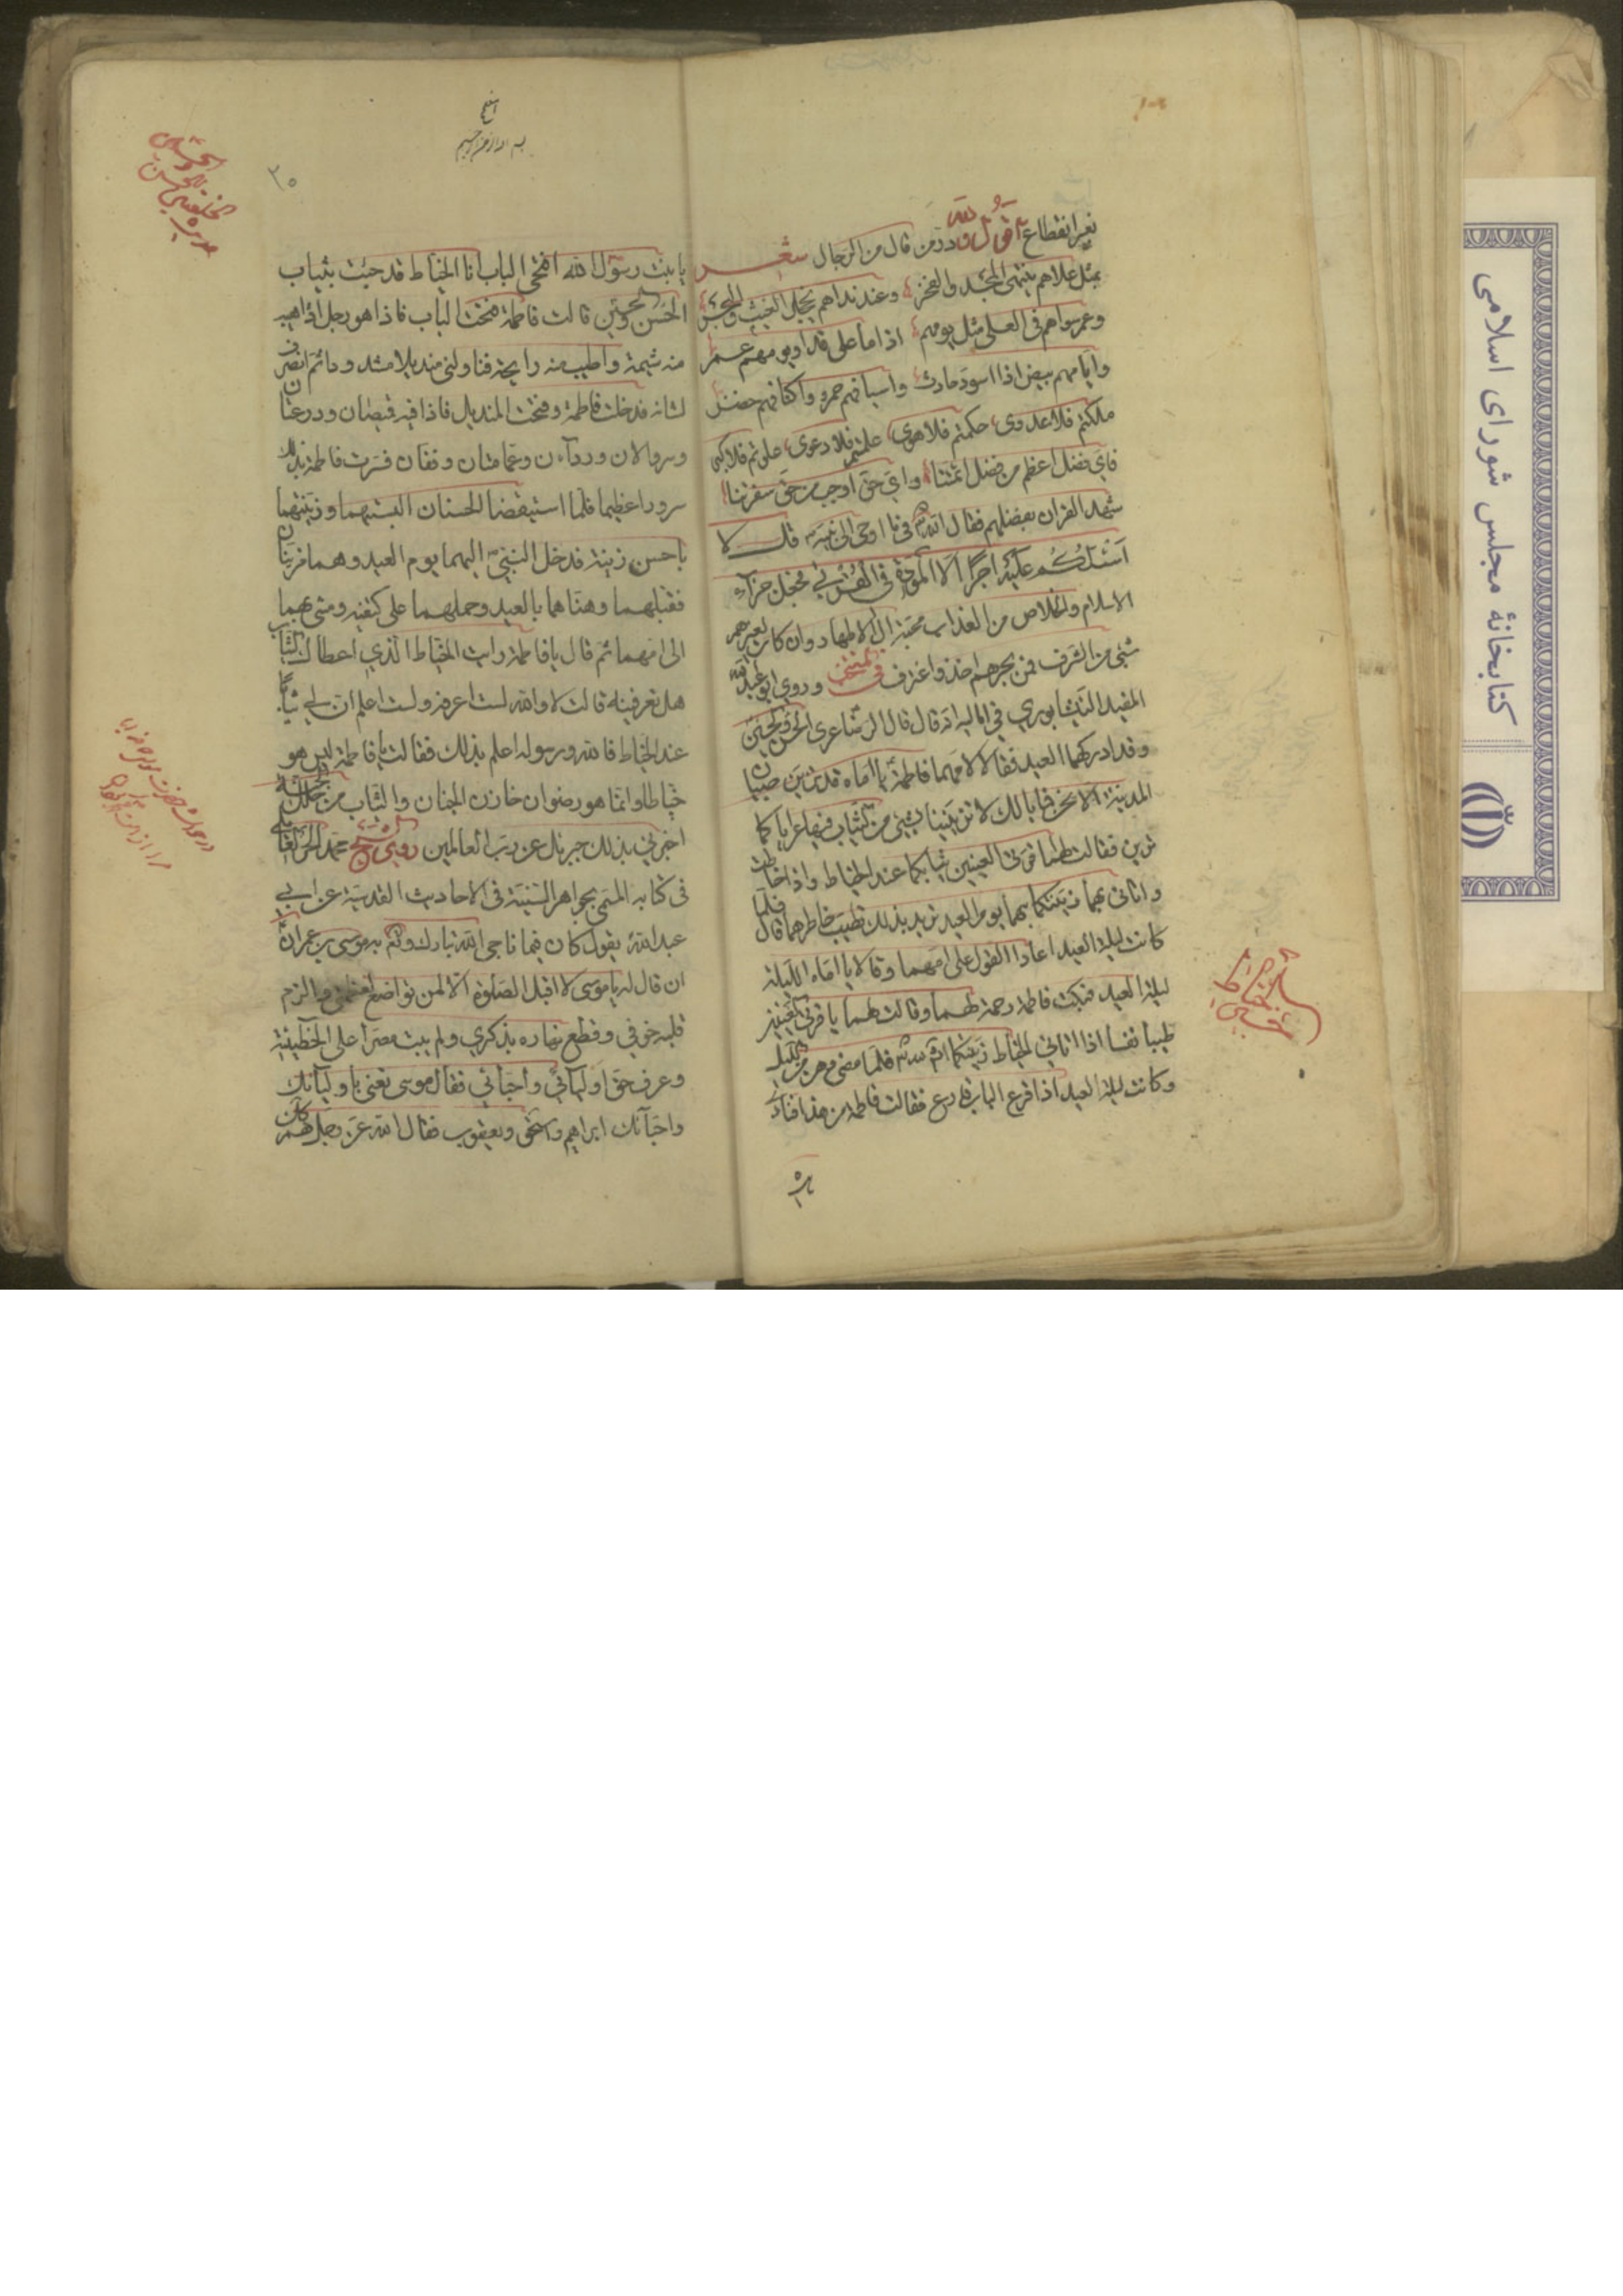 بغير انقطاع اقول ولله در من قال من الرجال شعر
بمثل علاهم ينتهى المجد والفخر وعند نداهم يخجل الغيث والبحر
وعمر سواهم فى العلى مثل يومهم اذا ما على قدرا ويومهم عمر
وايامهم بيض اذا اسود حادث واسيافهم حمر واكنافهم خضر
ملكتم فلا عدوى حكمتم فلا هوى علمتم فلا دعوى علوتم فلا كبر
فاى فضل اعظم من فضل ائمتنا واى حق اوجب من حق
شهد القران بفضلهم فقال الله فى ما اوحى الى نبيه قل لا
اسئلكم عليه اجرا الا المودة فى القربى فجعل جزاء
الاسلام والخلاص من العذاب محبة ال الاطهار وان كان لغيرهم
شئ من الشرف فمن بحرهم اخذ واغترف وروى ابو عبد الله
المفيد النيشابورى فى اماليه انه قال قال الرضا عرى الحسن والحسين
وقد ادركهما العيد فقالا لامهما فاطمة يا اماه قد تزين صبيان
المدينة الا نحن فما بالك لا تزينينا بشئ من الثياب فها عرايا كما
ترين فقالت لهما قرتى العينين ثيابكما عند الخياط واذا خاطت
واتانى بهما زينتكما بهما يوم العيد تريد بذلك تطيب خاطرهما قال فلما
كانت ليلة العيد اعادا القول على امهما وقالا يا اماه الليلة
ليلة العيد فبكت فاطمة رحمة لهما وقالت لهما يا قرتى العينين
طيبا نفسا اذا اتانى الخياط زينتكما ان شاء الله فلما مضى وهن من الليل
وكانت ليلة العيد اذا قرع الباب قارع فقالت فاطمة من هذا فناد
يا بنت رسول الله افتحى الباب انا الخياط قد جئت بثياب
الحسن والحسين قالت فاطمة ففتحت الباب فاذا هو رجل اهيب
منه شيمة واطيب منه رايحة فناولنى منديلا مشدودا ثم انصرف
لشانه فدخلت فاطمة وفتحت المنديل فاذا فيه قميصان ودرعتان
وسروالان ورداءن وعمامتان وخفان فسرت فاطمة بذلك
سرورا عظيما فلما استيقضا الحسنان البستهما وزينتهما
باحسن زينة فدخل النبى اليهما يوم العيد وهما مزينان
فقبلهما وهناهما بالعيد وحملهما على كتفيه ومشى بهما
الى امهما ثم قال يا فاطمة رايت الخياط الذى اعطاك الثياب
هل تعرفينه قالت لا والله لست اعرفه ولست اعلم ان لى ثيابا
عند الخياط فالله ورسوله اعلم بذلك فقال يا فاطمة ليس هو
خياطا وانما هو رضوان خازن الجنان والثياب من حلل الجنة
اخبرنى بذلك جبرئل عن رب العالمين روى الشيخ محمد الحر العاملى
فى كتابه المسمى بجواهر السنية فى الاحاديث القدسية عن ابى
عبد الله يقول كان فيما ناجى الله تبارك وتعالى به موسى بن عمران
ان قال له يا موسى لا اقبل الصلوة الا لمن تواضع لعظمتى والزم
قلبه خوفى وقطع نهاره بذكرى ولم يبت مصرا على الخطيئة
وعرف حق اوليائى واحبائى فقال موسى تعنى باوليائك
واحبائك ابراهيم واسحق ويعقوب فقال الله عز وجل هم كان
٣٥
كتابخانهٔ مجلس شوراى اسلامى